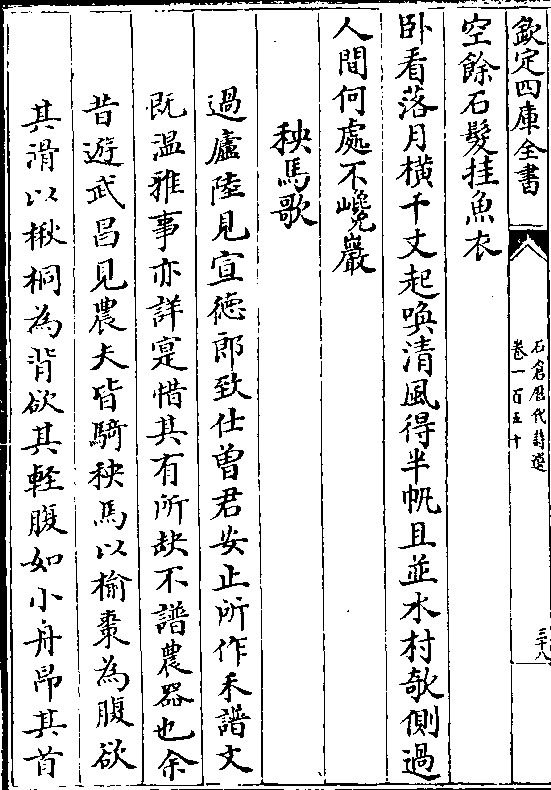 欽定四庫全書
石倉歷代詩選
卷一百五十
三十八
空餘石髮挂魚衣
卧看落月橫千丈起喚清風得半帆且並水村欹側過
人間何處不巉巖
秧馬歌
過廬陸見宣徳郎致仕曽君安止所作禾譜文
既温雅事亦詳寔惜其有所缺不譜農器也余
昔遊武昌見農夫皆騎秧馬以榆棗為腹欲
其滑以楸桐為背欲其軽腹如小舟昂其首